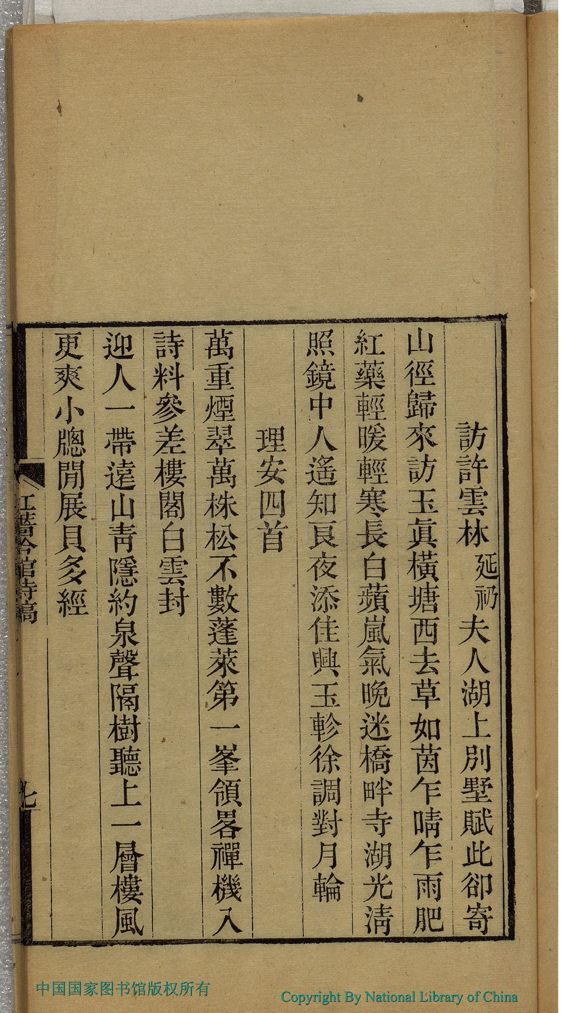 訪許雲林延礽夫人湖上別墅賦此卻寄
山徑歸來訪玉眞橫塘西去草如茵乍晴乍雨肥
紅藥輕暖輕寒長白蘋嵐氣晚迷橋畔寺湖光淸
照鏡中人遙知良夜添佳興玉軫徐調對月輪
理安四首
萬重煙翠萬株松不數蓬萊第一峯領畧禪機入
詩料參差樓閣白雲封
迎人一帶遠山靑隱約泉聲隔樹聽上一層樓風
更爽小牕閒展貝多經
館詩稿
七
中国国家图书馆版权所有
Copyright By National Library of China